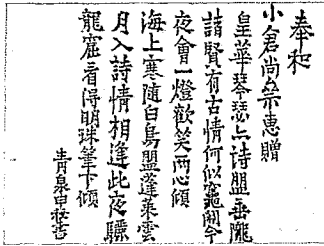 奉和
小倉尚齋惠贈
皇華琴瑟占诗盟垂隴
諸賢有古情何似竈關今
夜會一燈歡笑两心傾
海上寒随白鳥盟蓬莱雲
月入詩情相逢此夜驪
龍窟看得明珠筆下傾
青泉申